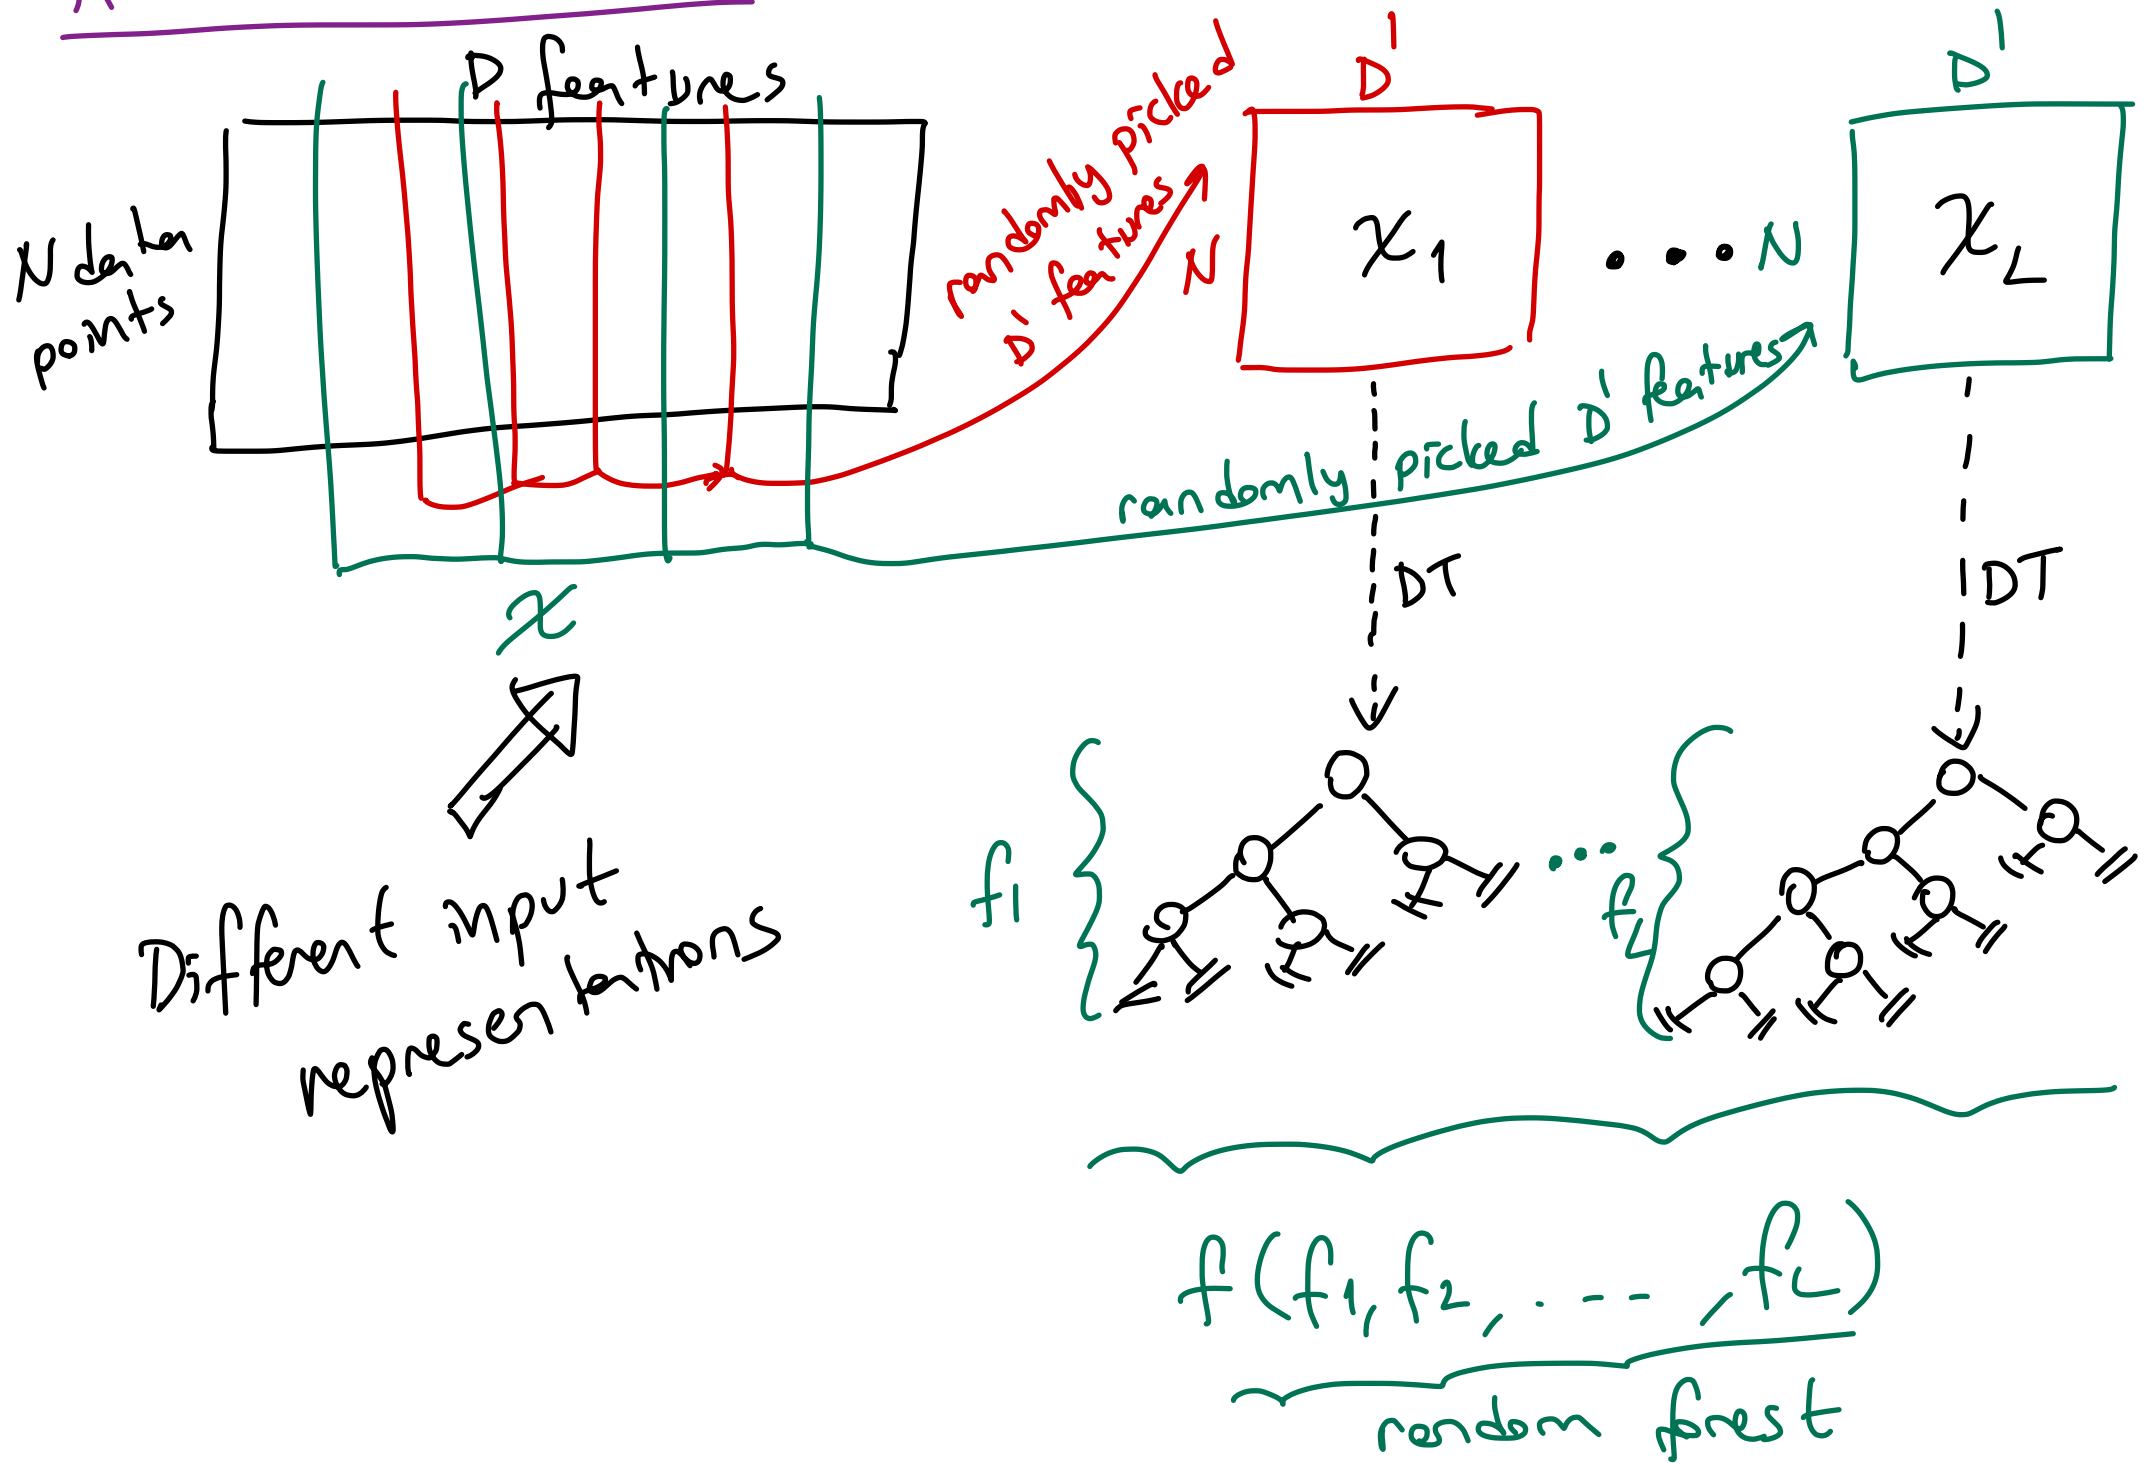 D features
N data
points
randomly picked
D' features
D'
N
X1
...
D'
N
XL
randomly picked D' features
X
DT
DT
Different input
representations
f1
...
fL
f(f1, f2, ...., fL)
random forest